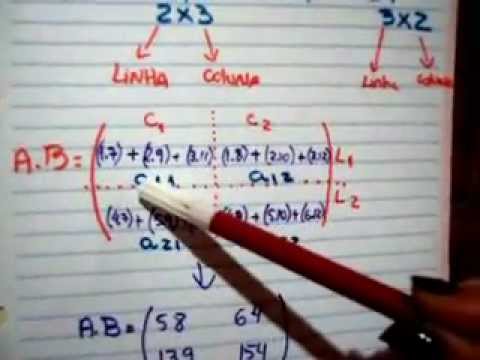 2x3 3x2
LINHA COLUNA Linha Coluna
C1 C2
A.B= (1.7) + (2.9) + (3.11) (1.8) + (2.10) + (3.12) L1
a11 a12
L2
(4.7) + (5.9) + .8) + (5.10) + (6.12)
a21
A.B= 58 64
139 154